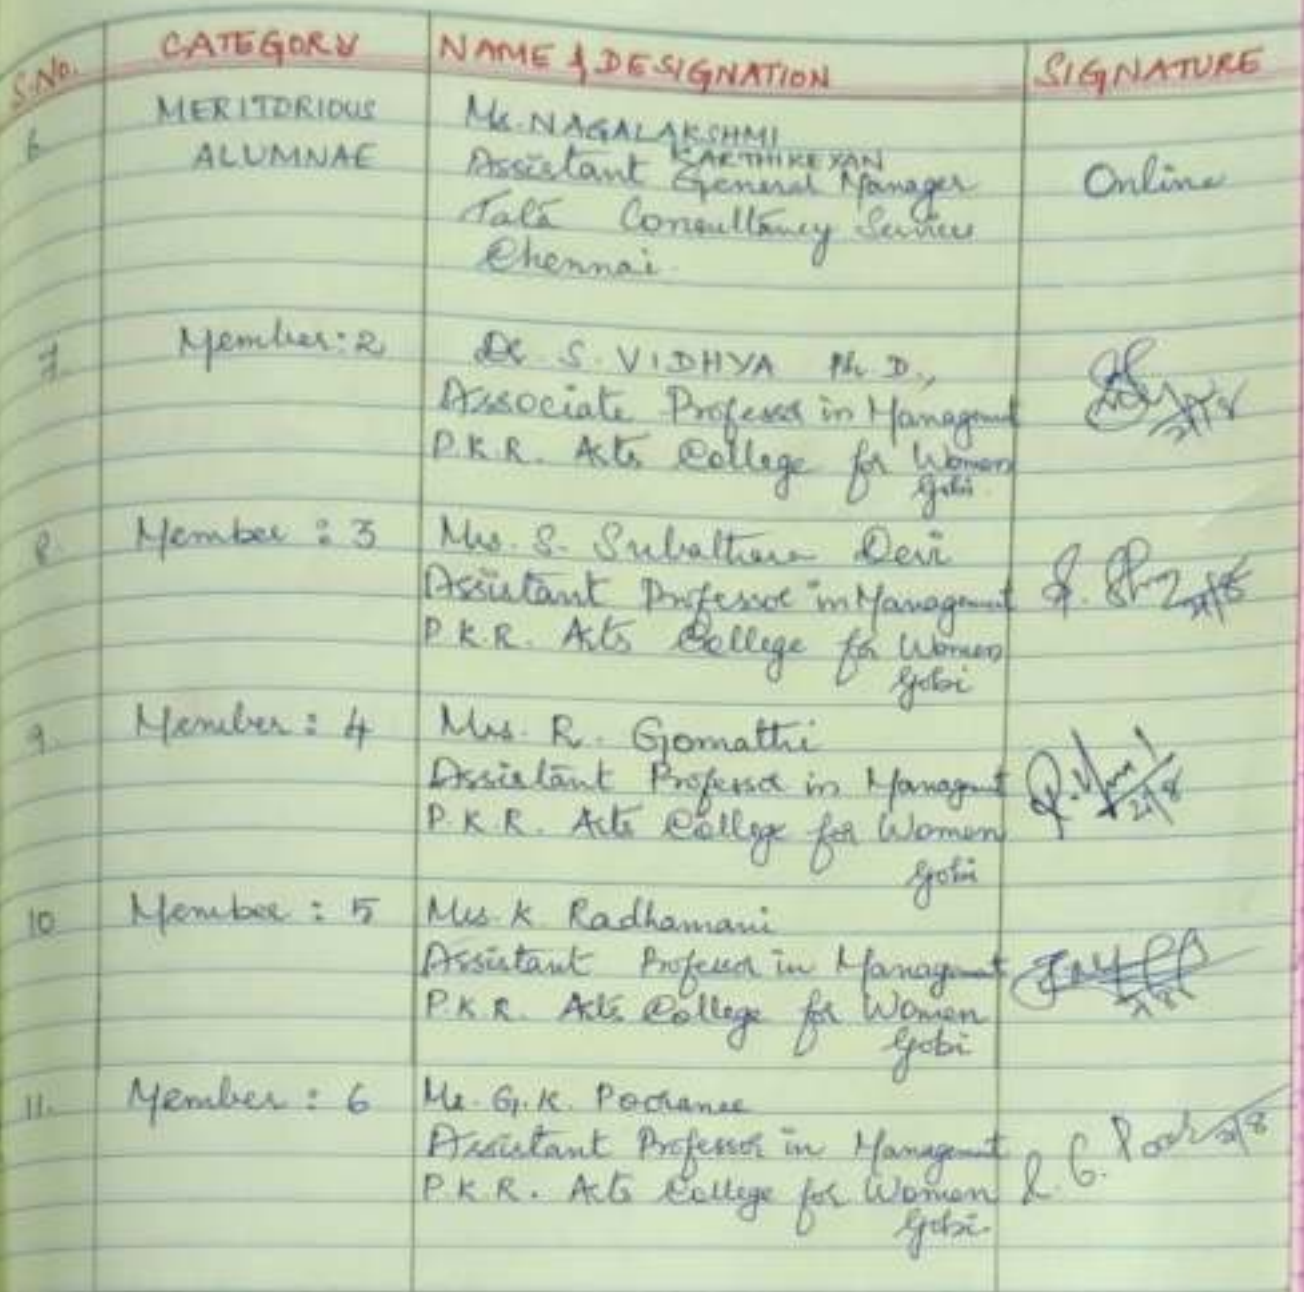 S.No. CATEGORY NAME & DESIGNATION SIGNATURE
6. MERITORIOUS Ms. NAGALAKSHMI
ALUMNAE KARTHIKEYAN
Assistant General Manager Online
Tata Consultancy Services
Chennai.
7. Member: 2 Dr. S. VIDHYA Ph. D.,
Associate Professor in Management
P.K.R. Arts College for Women
Gobi.
8. Member : 3 Mrs. S. Devi
Assistant Professor in Management
P.K.R. Arts College for Women
Gobi
9. Member : 4 Mrs. R. Gomathi
Assistant Professor in Management
P.K.R. Arts College for Women
Gobi
10 Member : 5 Mrs. K Radhamani
Assistant Professor in Management
P.K.R. Arts College for Women
Gobi
11. Member : 6 G.K.
Assistant Professor in Management
P.K.R. Arts College for Women
Gobi.